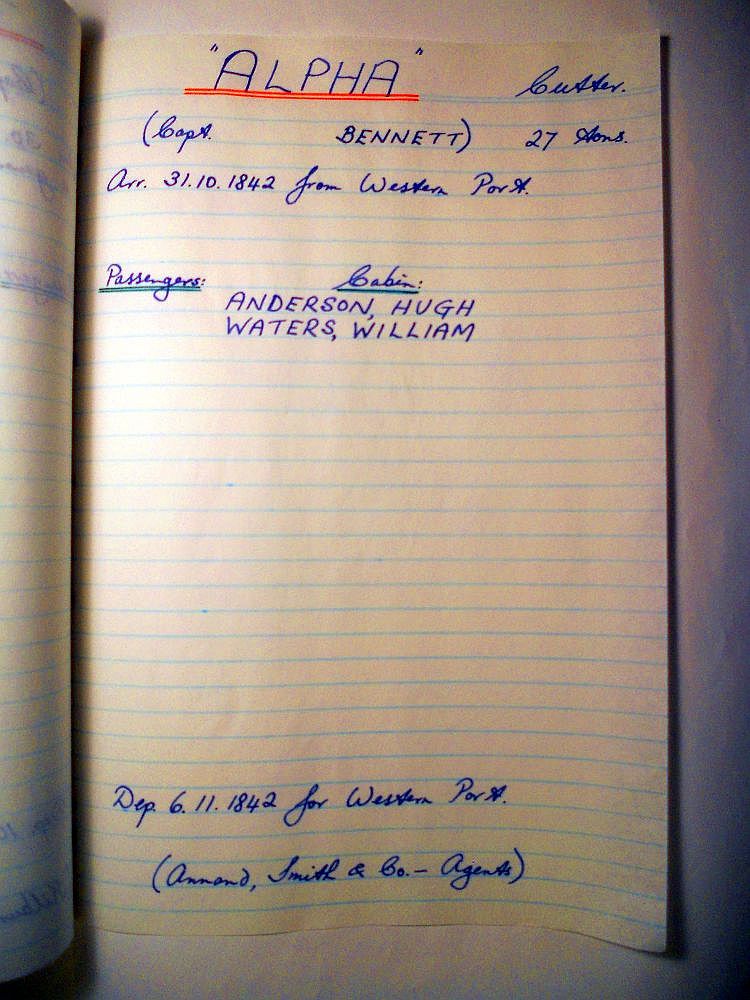 "ALPHA" Cutter.
(Capt. BENNETT) 27 tons.
Arr. 31.10.1842 from Western Port.
Passengers: Cabin:
ANDERSON, HUGH
WATERS, WILLIAM
Dep. 6.11.1842 for Western Port.
(Annand, Smith & Co. — Agents)